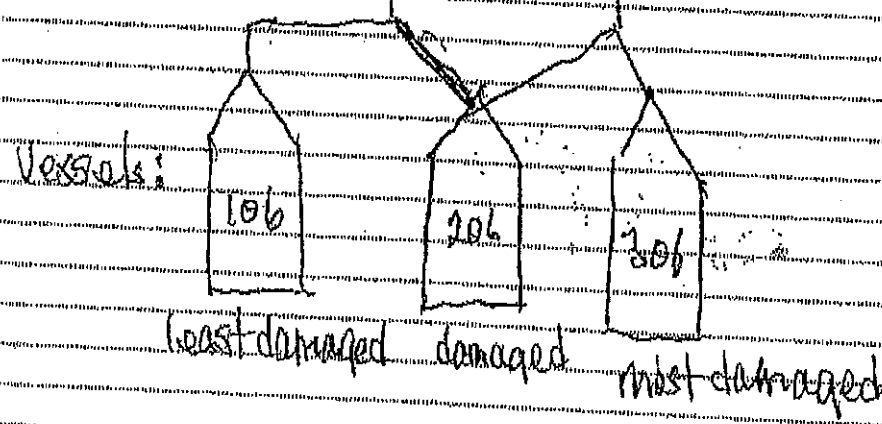 Vessels:
106 206 306
least damaged damaged most damaged